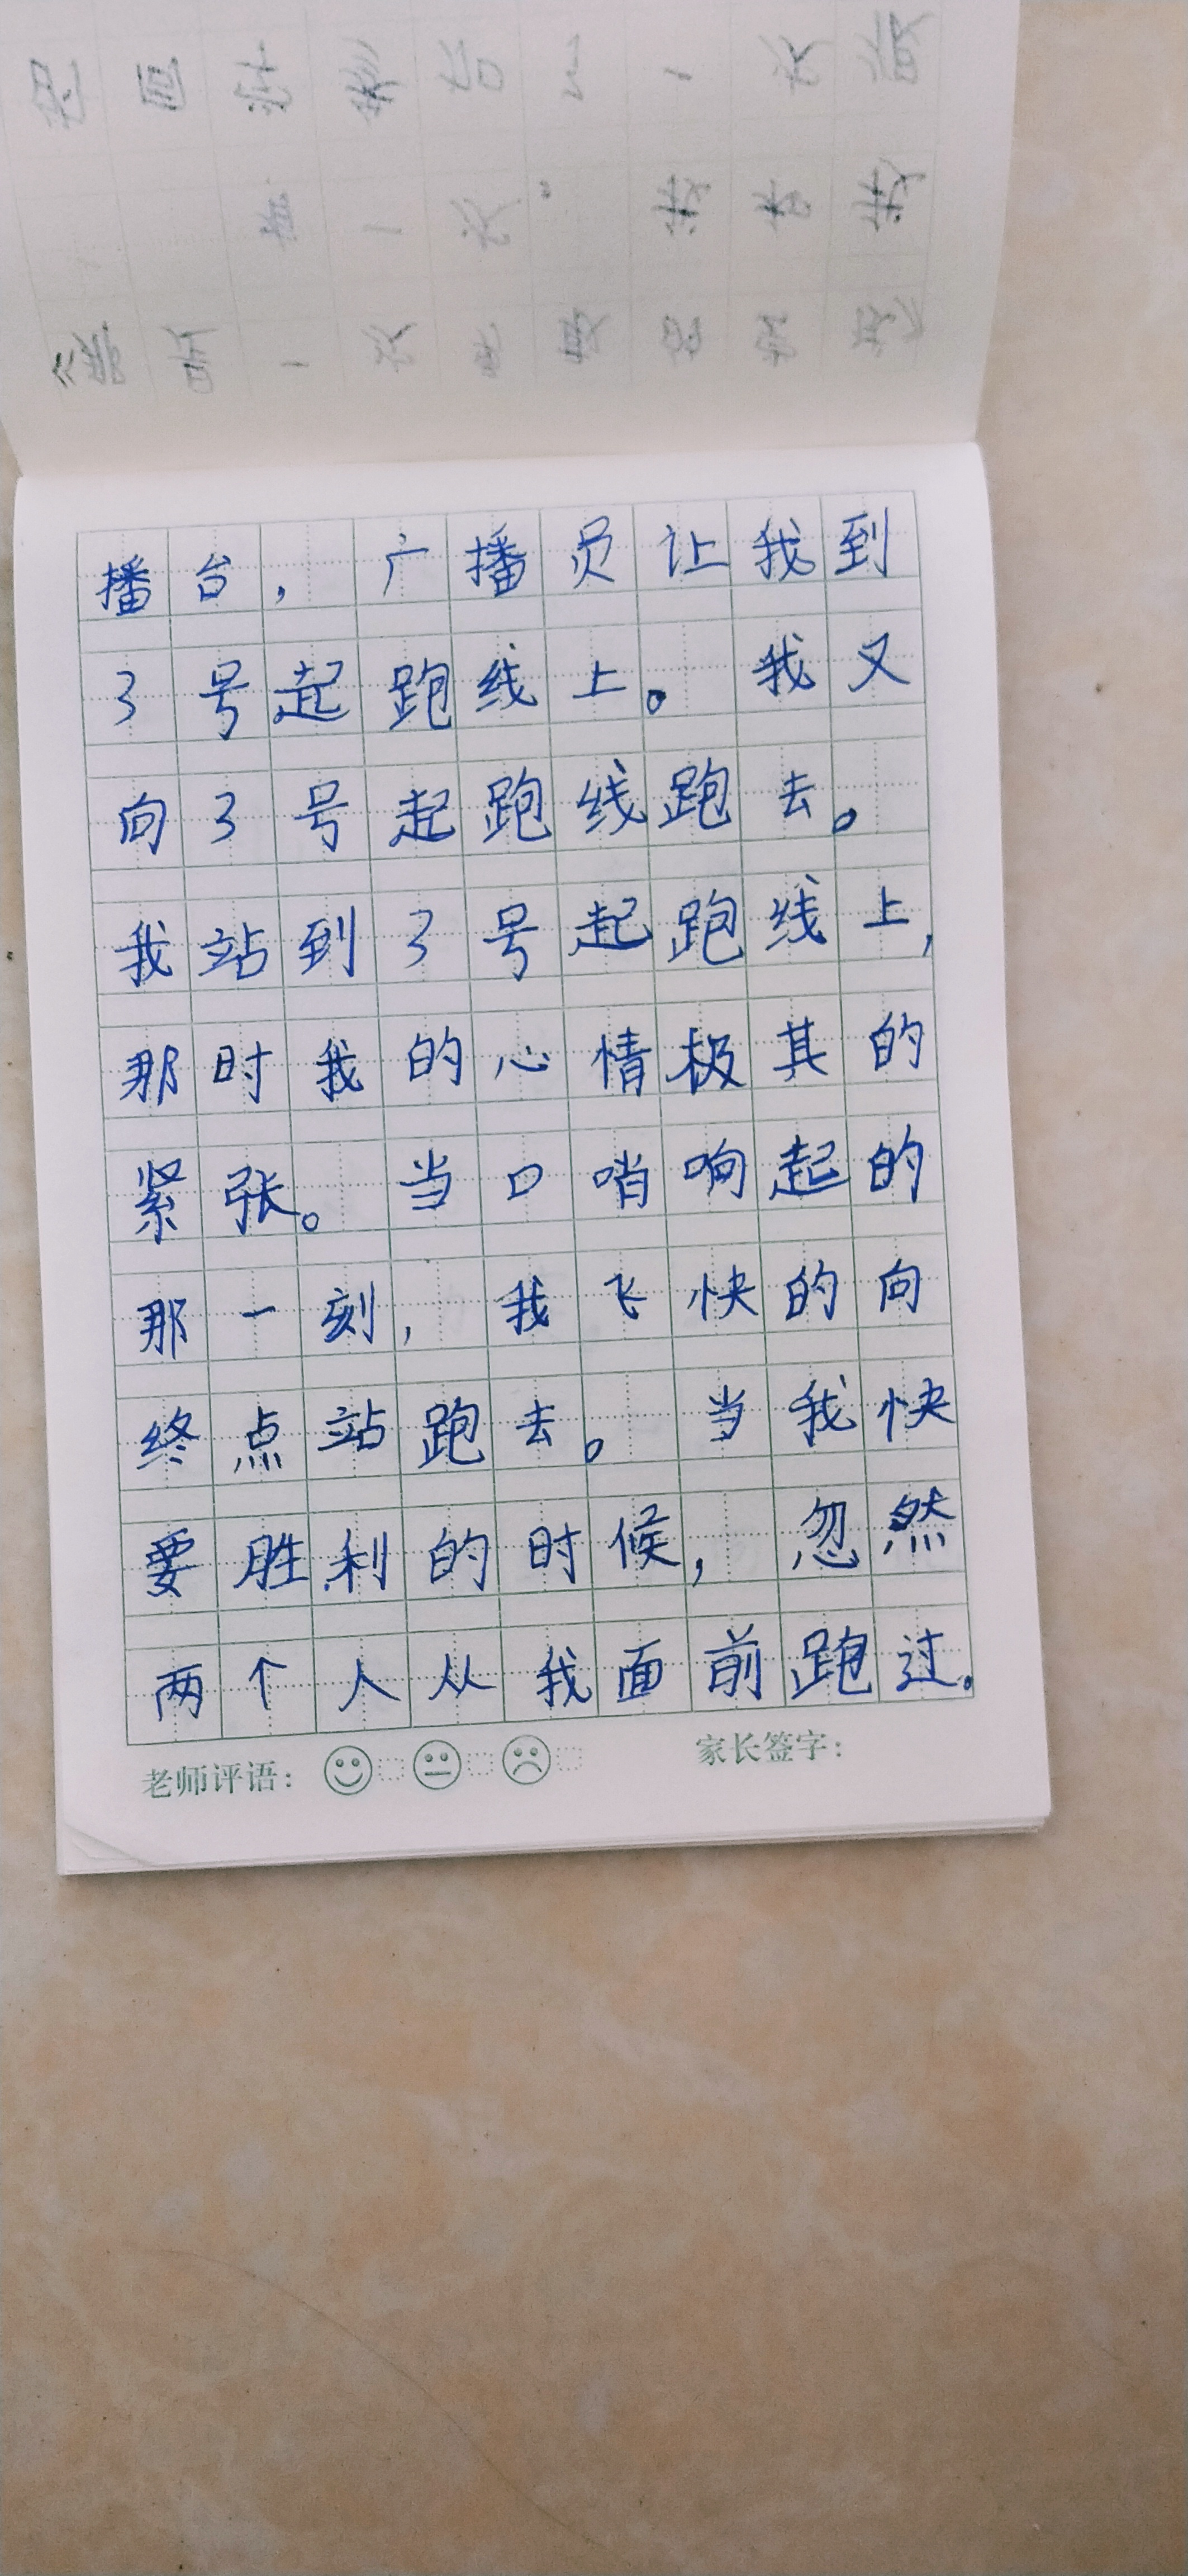 《那是一次勇敢的尝试》
播台，广播员让我到
3号起跑线上。我又
向3号起跑线跑去。
我站到3号起跑线上，
那时我的心情极其的
紧张。当口哨响起的
那一刻，我飞快的向
终点站跑去。当我快
要胜利的时候，忽然
两个人从我面前跑过。
老师评语：
家长签字：